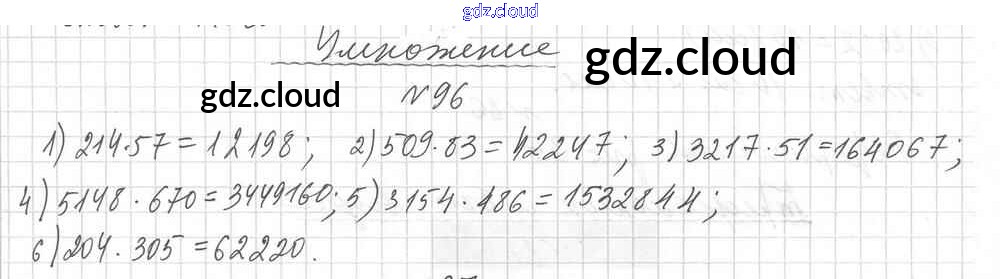 gdz.cloud
Умножение
gdz.cloud
gdz.cloud
№96
1) 214·57=12198; 2) 509·83=42247; 3) 3217·51=164067;
4) 5148·670=3449160; 5) 3154·486=1532844;
6) 204·305=62220.